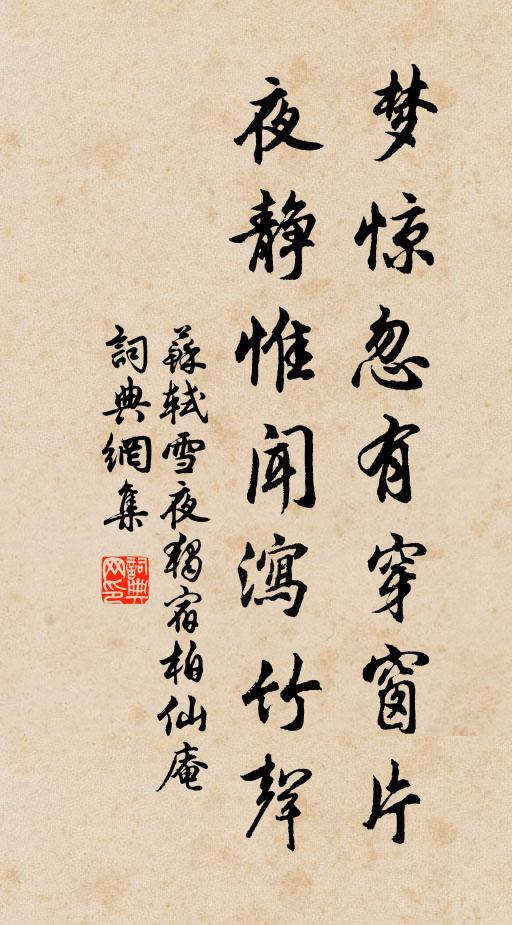 梦惊忽有穿窗片
夜静惟闻瀉竹聲
蘇轼雪夜独宿柏仙庵
詞典網集
詞典网印